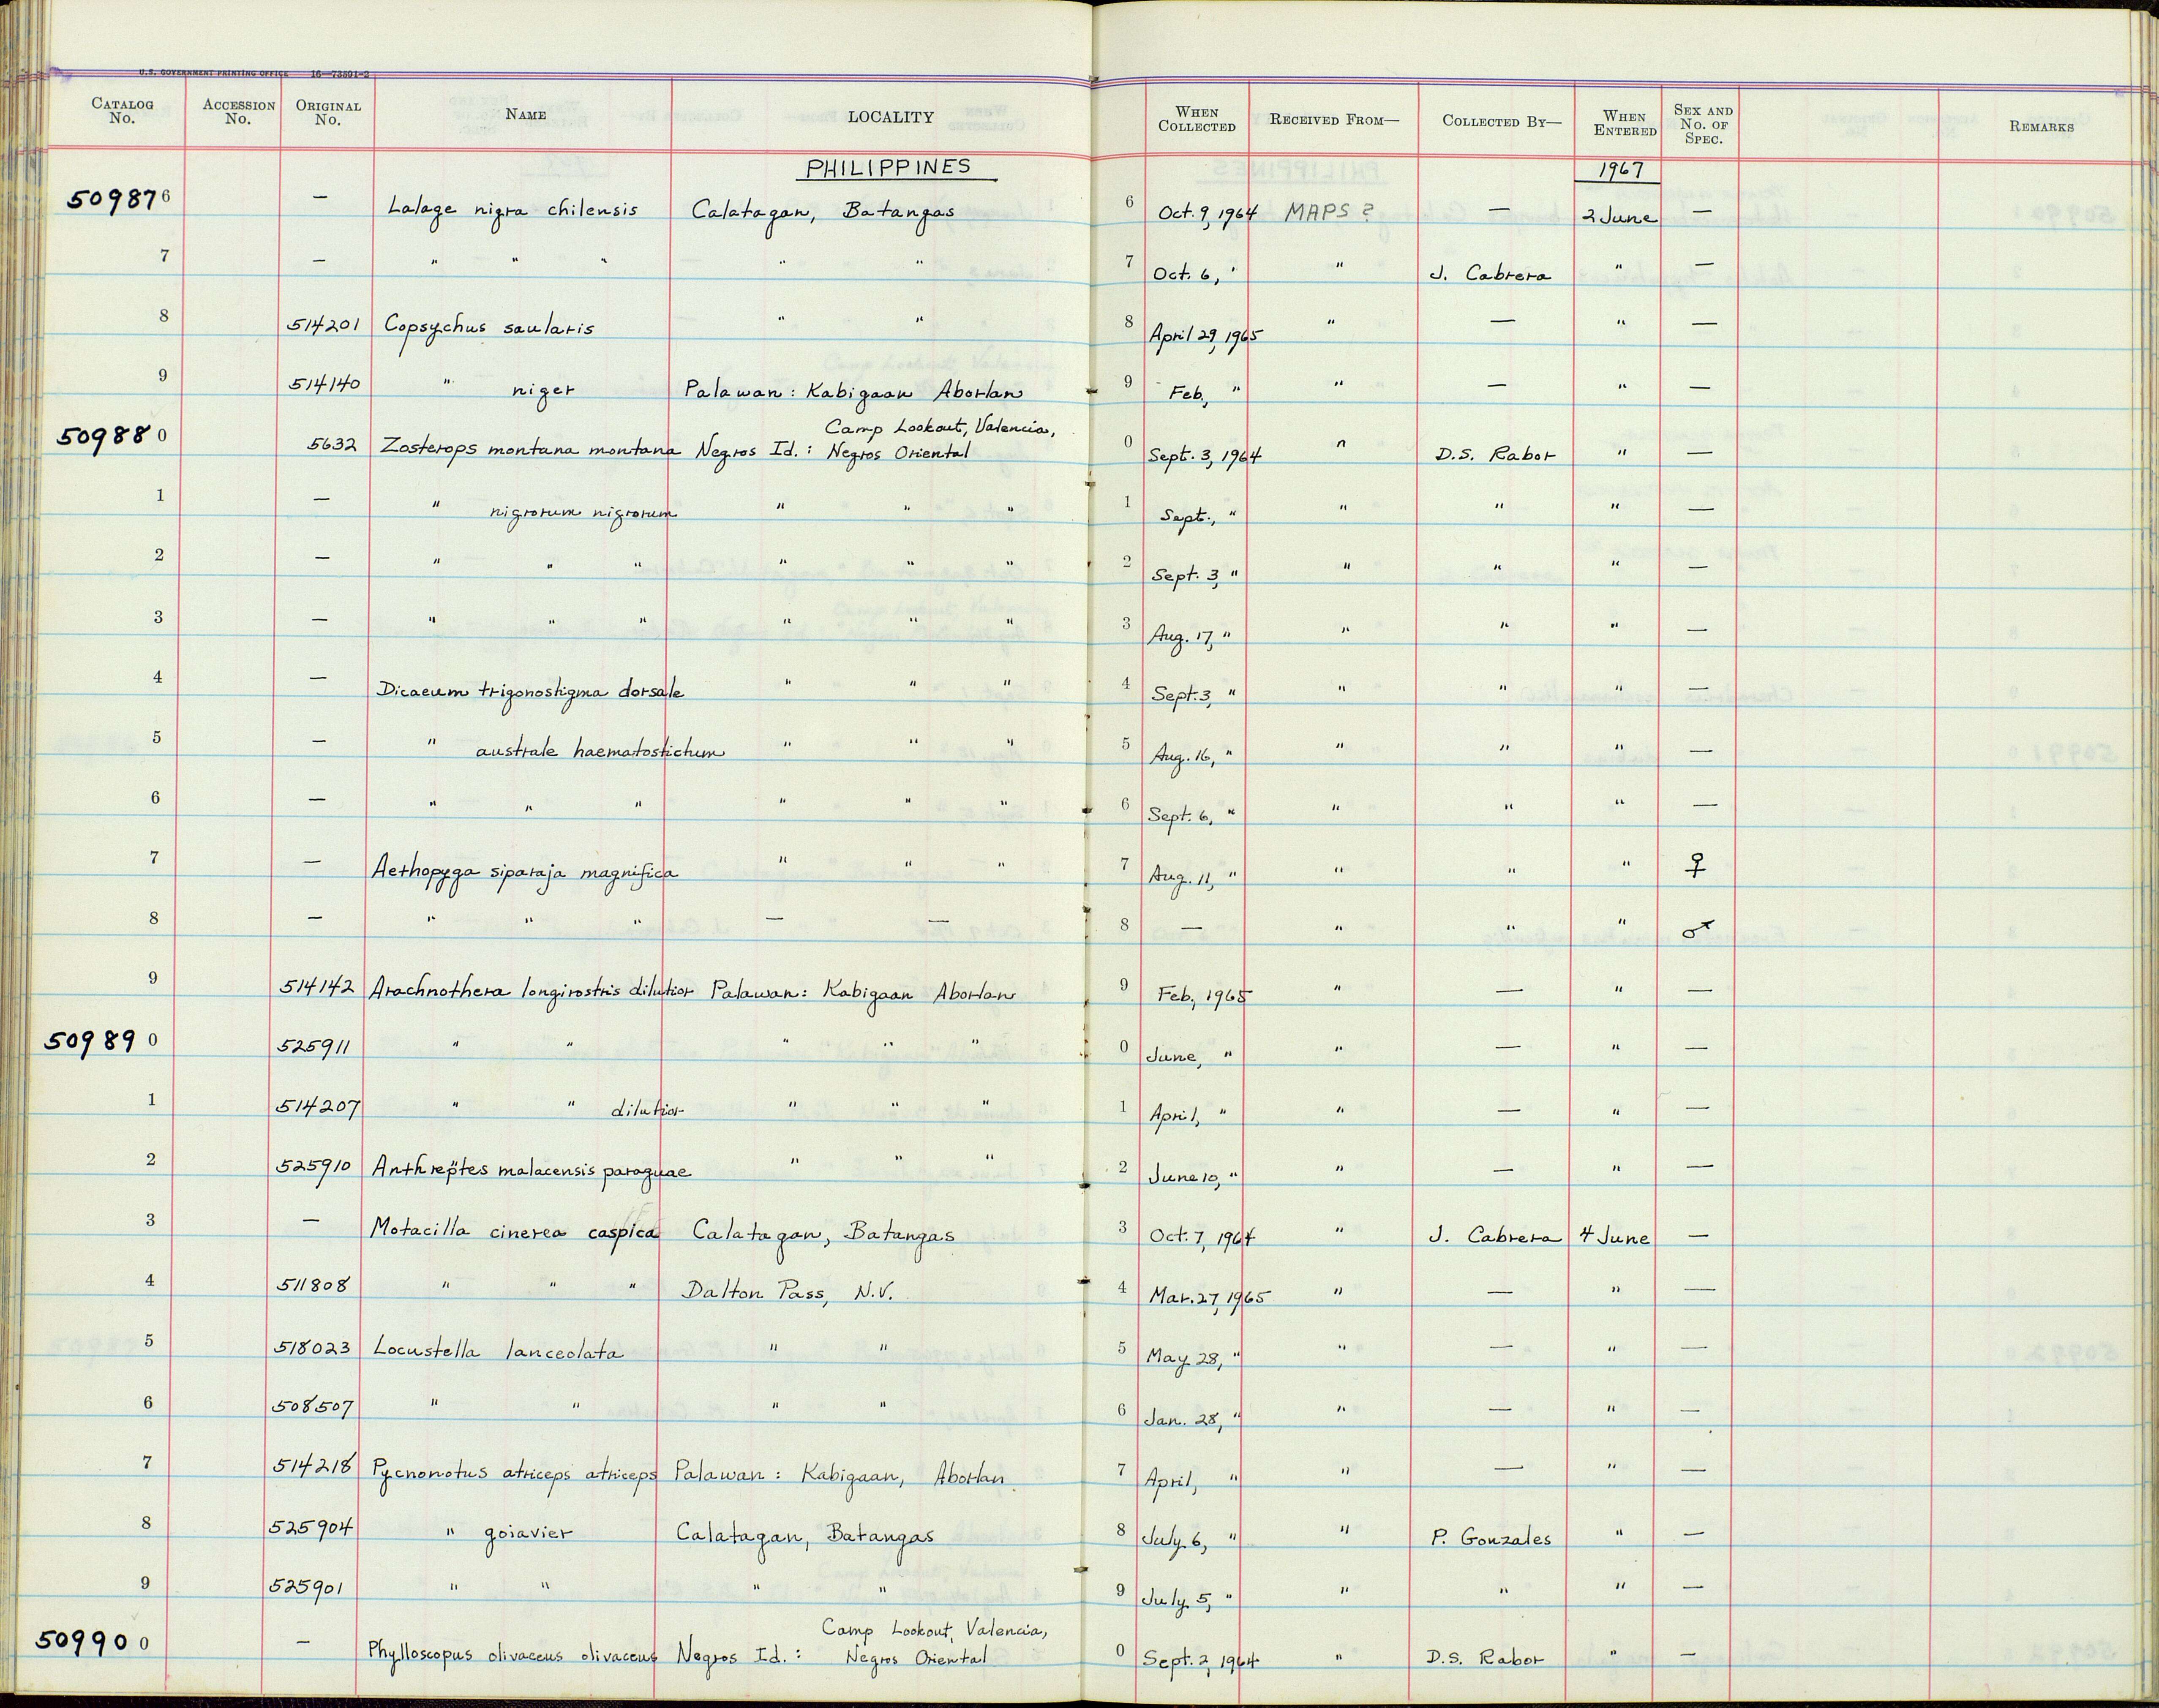 U.S. GOVERNMENT PRINTING OFFICE 16—73891-2
CATALOG No. ACCESSION No. ORIGINAL No. NAME LOCALITY WHEN COLLECTED RECEIVED FROM— COLLECTED BY— WHEN ENTERED SEX AND No. OF SPEC. REMARKS
PHILIPPINES 1967
509876 — Lalage nigra chilensis Calatagan, Batangas 6 Oct. 9, 1964 MAPS ? — 2 June —
7 — " " " " " 7 Oct. 6, " " J. Cabrera " —
8 514201 Copsychus saularis " " 8 April 29, 1965 " — " —
9 514140 " niger Palawan: Kabigaan Aborlan 9 Feb., " " — " —
Camp Lookout, Valencia,
509880 5632 Zosterops montana montana Negros Id.: Negros Oriental 0 Sept. 3, 1964 " D.S. Rabor " —
1 — " nigrorum nigrorum " " " 1 Sept., " " " " —
2 — " " " " " " 2 Sept. 3, " " " " —
3 — " " " " " " 3 Aug. 17, " " " " —
4 — Dicaeum trigonostigma dorsale " " " 4 Sept. 3, " " " " —
5 — " australe haematostictum " " " 5 Aug. 16, " " " " —
6 — " " " " " " 6 Sept. 6, " " " " —
7 — Aethopyga siparaja magnifica " " " 7 Aug. 11, " " " " ♀
8 — " " " — — 8 — " " " ♂
9 514142 Arachnothera longirostris dilutior Palawan: Kabigaan Aborlan 9 Feb., 1965 " — " —
509890 525911 " " " " " 0 June, " " — " —
1 514207 " " dilutior " " " 1 April, " " — " —
2 525910 Anthreptes malacensis paraguae " " " 2 June 10, " " — " —
3 — Motacilla cinerea caspica Calatagan, Batangas 3 Oct. 7, 1964 " J. Cabrera 4 June —
4 511808 " " " Dalton Pass, N.V. 4 Mar. 27, 1965 " — " —
5 518023 Locustella lanceolata " " 5 May 28, " " — " —
6 508507 " " " " 6 Jan. 28, " " — " —
7 514218 Pycnonotus atriceps atriceps Palawan: Kabigaan, Aborlan 7 April, " " — " —
8 525904 " goiavier Calatagan, Batangas 8 July 6, " " P. Gonzales " —
9 525901 " " " " 9 July 5, " " " " —
Camp Lookout, Valencia,
509900 — Phylloscopus olivaceus olivaceus Negros Id.: Negros Oriental 0 Sept. 2, 1964 " D.S. Rabor " —